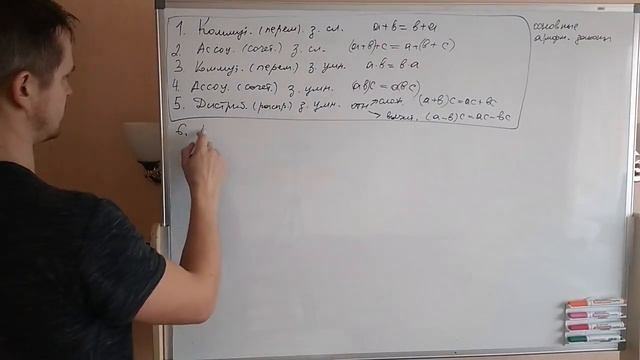 1. Коммут. (перем). з. сл. a+b=b+a
2. Ассоц. (сочет.) з. сл. (a+b)+c=a+(b+c)
3. Коммут. (перем) з. умн. a·b=b·a
4. Ассоц. (сочет.) з. умн. (ab)c=a(bc)
5. Дистриб. (распр.) з. умн. отн. слож. (a+b)c=ac+bc
вычит. (a-b)c=ac-bc
6.
основные
арифм. законы